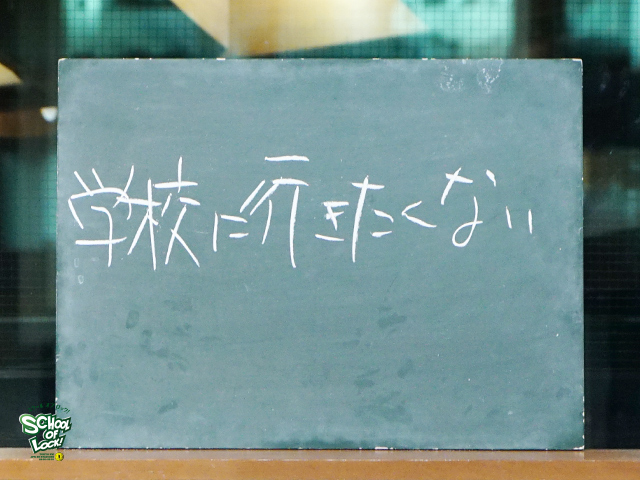 学校に行きたくない
SCHOOL
OF
LOCK!